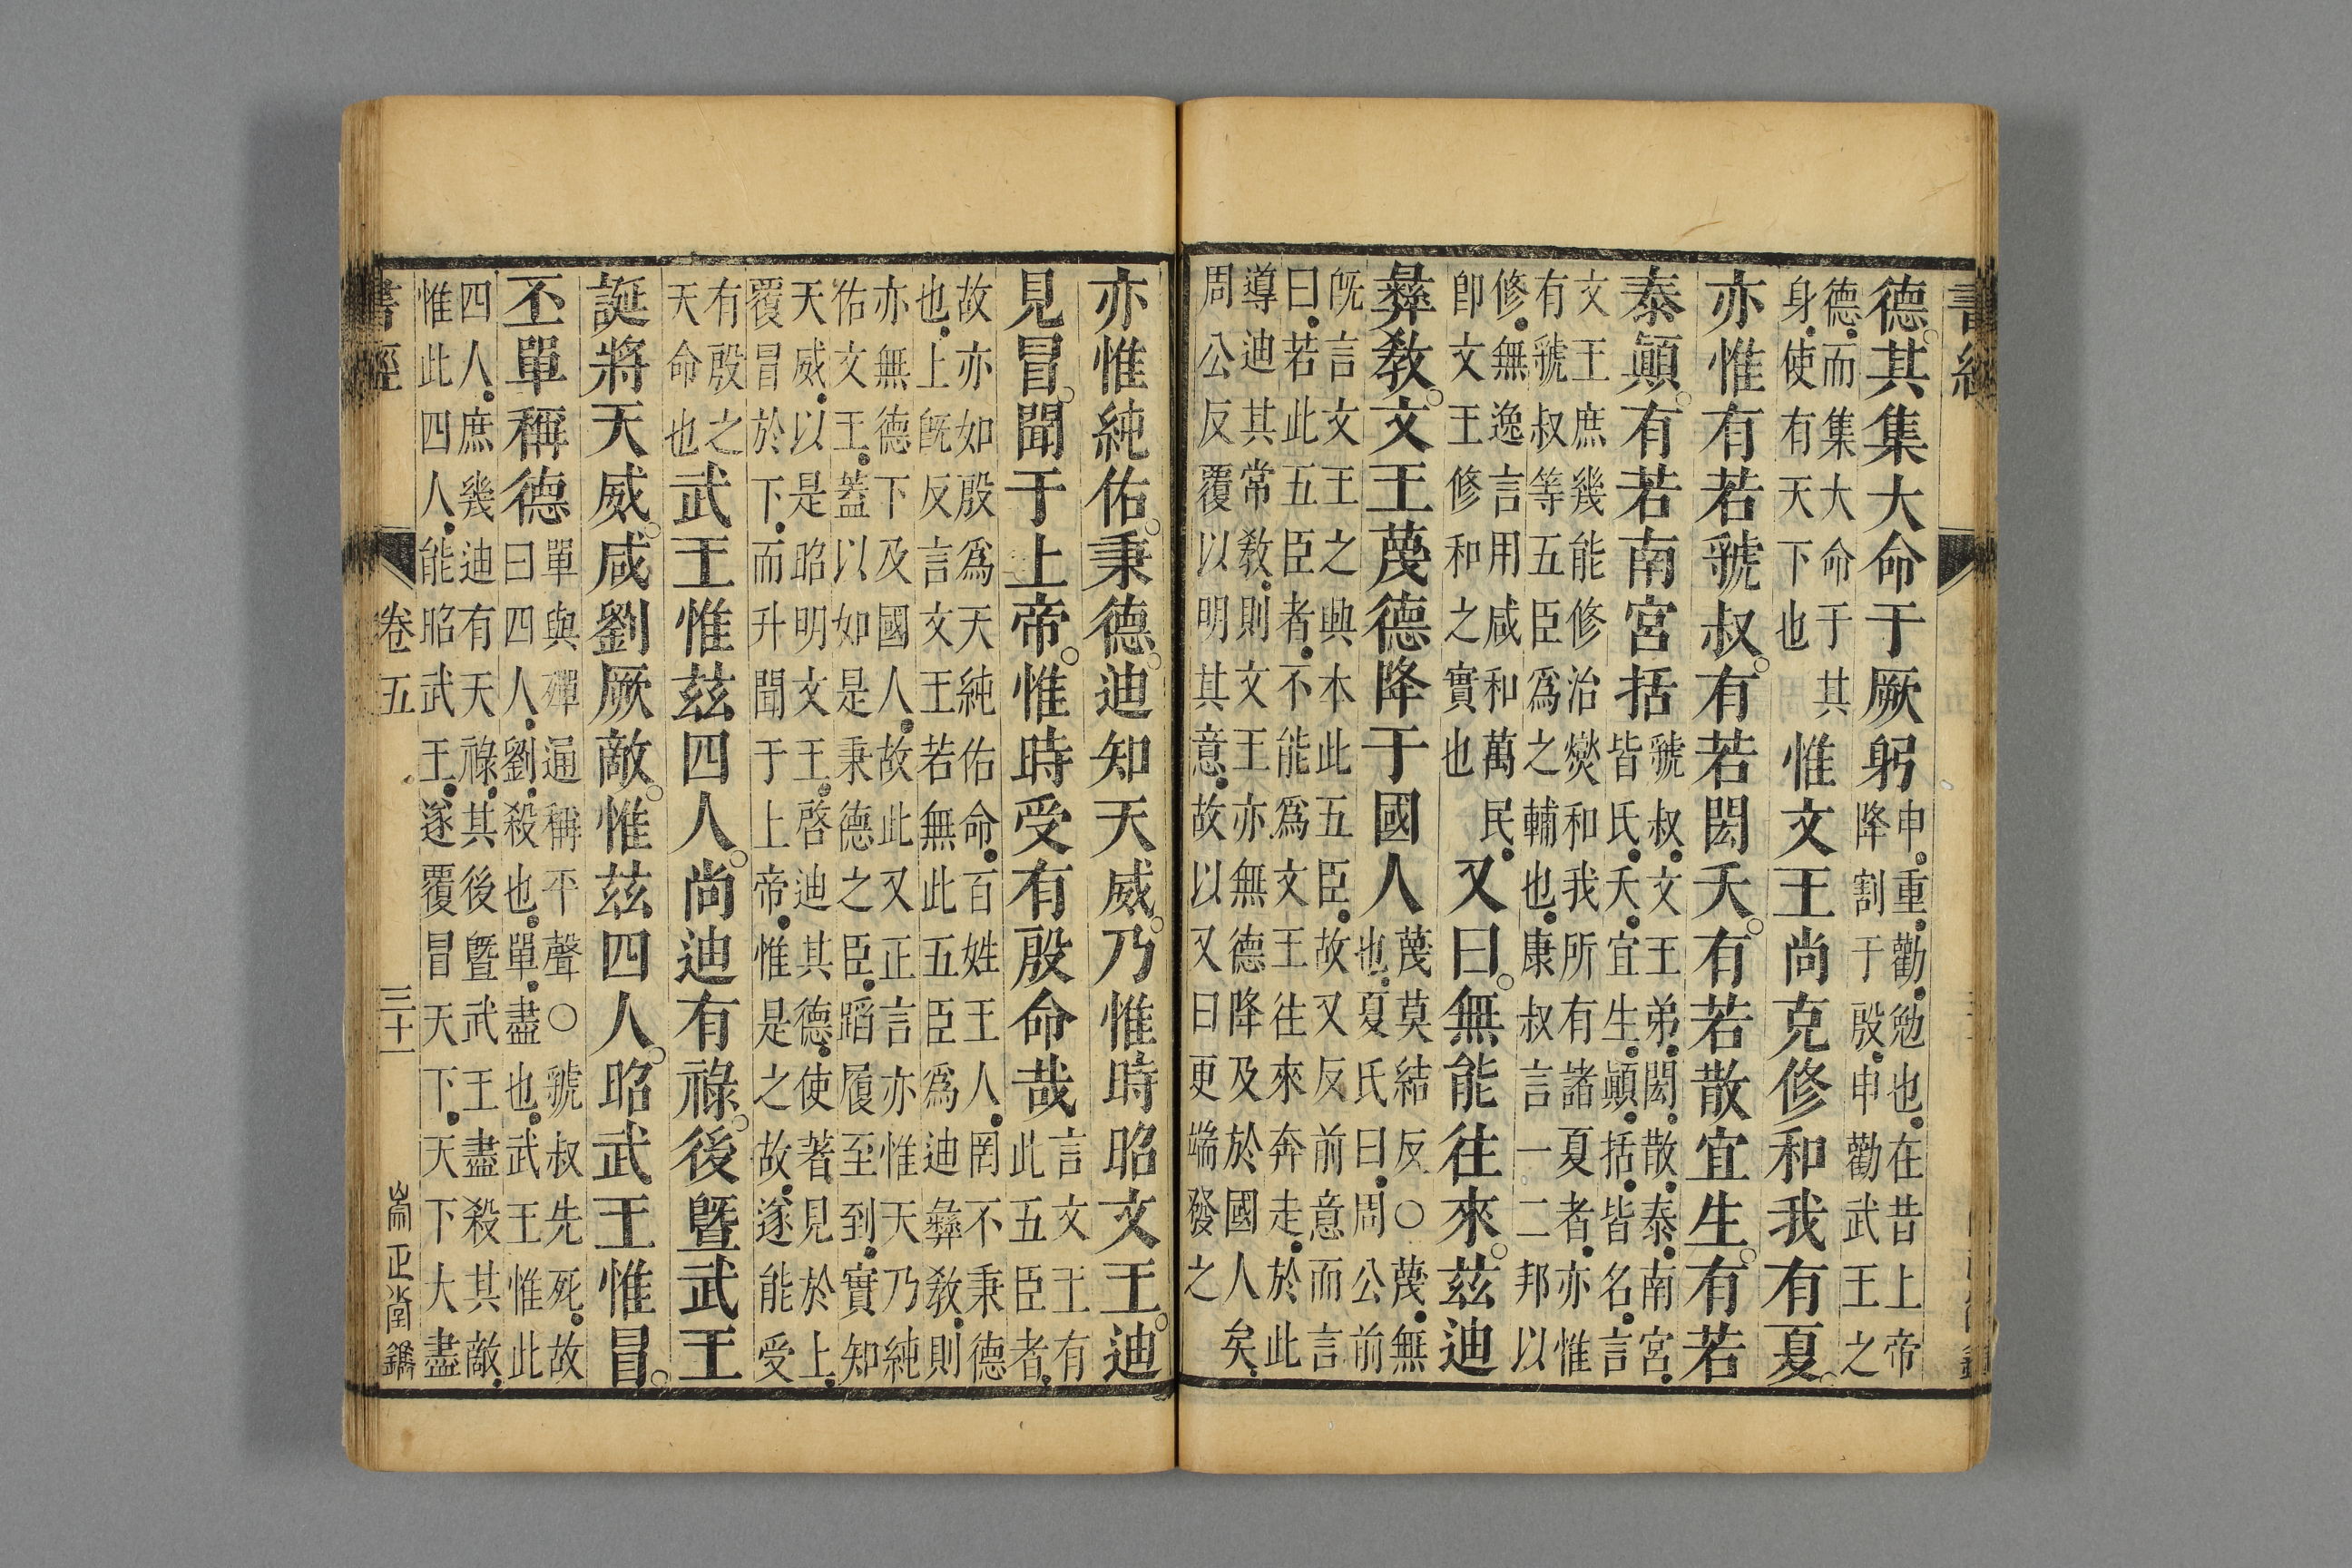 書經
德。其集大命于厥躬申。重。勸。勉也。在昔上帝
降割于殷。申勸武王之
德。而集大命于其
身。使有天下也惟文王尚克修和我有夏。
亦惟有若虢叔。有若閎夭。有若散宜生。有若
泰顛。有若南宮括虢叔。文王弟。閎。散。泰。南宮。
皆氏。夭。宜生。顛。括。皆名。言
文王庶幾能修治燮和我所有諸夏者。亦惟
有虢叔等五臣爲之輔也。康叔言一二邦以
修。無逸言用咸和萬民。
卽文王修和之實也又曰。無能往來。茲迪
彝教。文王蔑德降于國人蔑莫結反○蔑。無
也。夏氏曰。周公前
旣言文王之興本此五臣。故又反前意而言
曰。若此五臣者。不能爲文王往來奔走。於此
導迪其常教。則文王亦無德降及於國人矣。
周公反覆以明其意。故以又曰更端發之
亦惟純佑。秉德。迪知天威。乃惟時昭文王。迪
見冒。聞于上帝。惟時受有殷命哉言文王有
此五臣者。
故亦如殷爲天純佑命。百姓王人。罔不秉德
也。上旣反言文王若無此五臣爲迪彝教。則
亦無德下及國人。故此又正言亦惟天乃純
佑文王。蓋以如是秉德之臣。蹈履至到。實知
天威。以是昭明文王。啓迪其德。使著見於上。
覆冒於下。而升聞于上帝。惟是之故。遂能受
有殷之
天命也武王惟茲四人。尚迪有祿。後暨武王
誕將天威。咸劉厥敵。惟茲四人。昭武王惟冒。
丕單稱德單與殫通稱平聲○虢叔先死。故
曰四人。劉。殺也。單。盡也。武王惟此
四人。庶幾迪有天祿。其後暨武王盡殺其敵。
惟此四人。能昭武王。遂覆冒天下。天下大盡
書經 卷五 三十一 崇正堂鐫